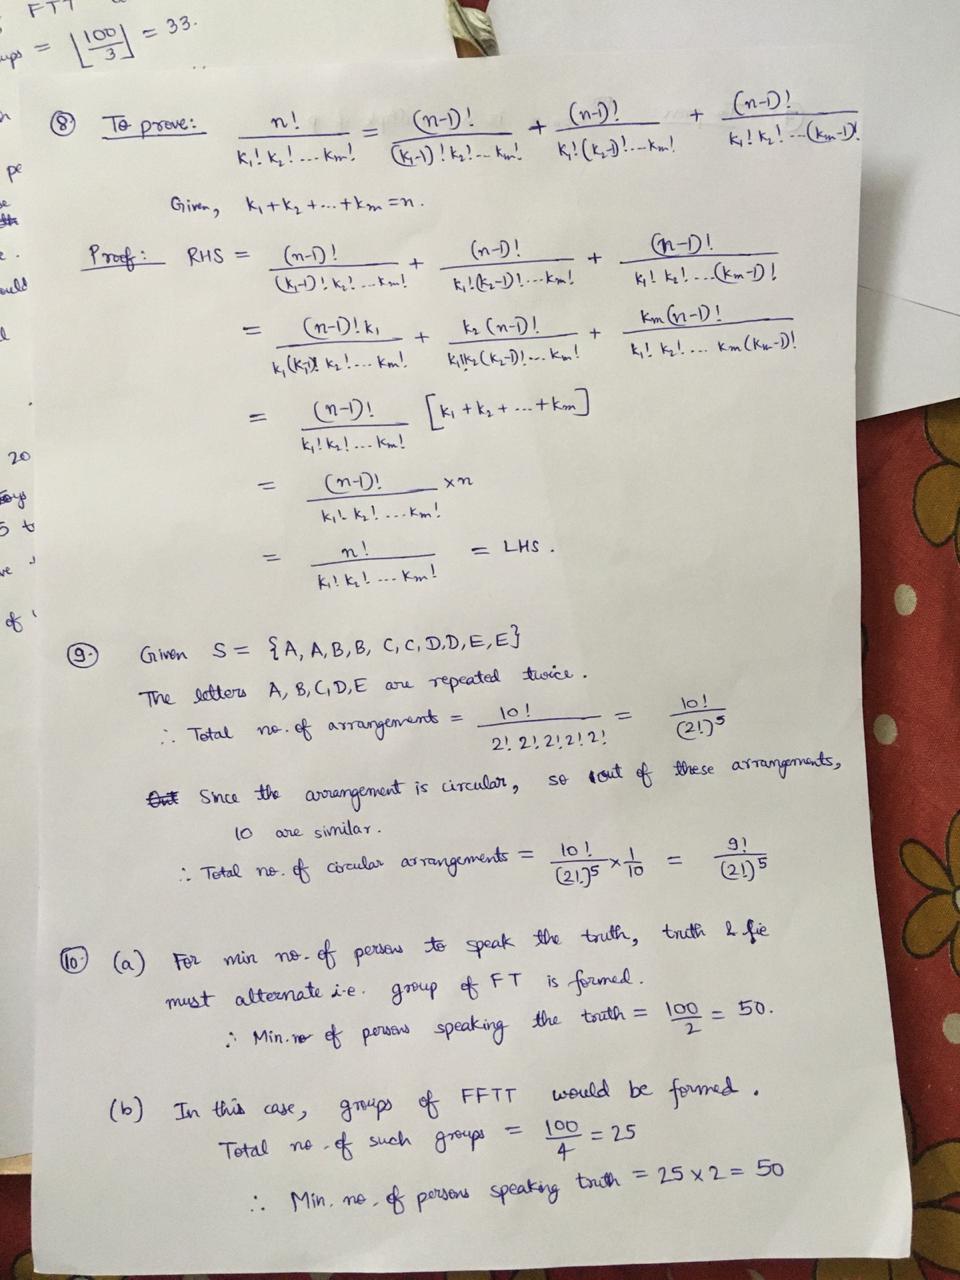 FTT
ups = ⌊100/3⌋ = 33.
⑧ To prove: n!/(k₁! k₂! ... kₘ!) = (n-1)!/((k₁-1)! k₂! ... kₘ!) + (n-1)!/(k₁! (k₂-1)! ... kₘ!) + (n-1)!/(k₁! k₂! ... (kₘ-1)!)
Given, k₁+k₂+...+kₘ=n.
Proof: RHS = (n-1)!/((k₁-1)! k₂! ... kₘ!) + (n-1)!/(k₁! (k₂-1)! ... kₘ!) + (n-1)!/(k₁! k₂! ... (kₘ-1)!)
= (n-1)! k₁/(k₁(k₁-1)! k₂! ... kₘ!) + k₂ (n-1)!/(k₁! k₂ (k₂-1)! ... kₘ!) + kₘ (n-1)!/(k₁! k₂! ... kₘ(kₘ-1)!)
= (n-1)!/(k₁! k₂! ... kₘ!) [k₁ + k₂ + ... + kₘ]
= (n-1)!/(k₁! k₂! ... kₘ!) × n
= n!/(k₁! k₂! ... kₘ!) = LHS.
⑨. Given S = {A, A, B, B, C, C, D, D, E, E}
The letters A, B, C, D, E are repeated twice.
∴ Total no. of arrangements = 10!/(2! 2! 2! 2! 2!) = 10!/(2!)⁵
Out Since the arrangement is circular, so out of these arrangements,
10 are similar.
∴ Total no. of circular arrangements = 10!/(2!)⁵ × 1/10 = 9!/(2!)⁵
⑩. (a) For min no. of persons to speak the truth, truth & lie
must alternate i.e. group of FT is formed.
∴ Min. no of persons speaking the truth = 100/2 = 50.
(b) In this case, groups of FFTT would be formed.
Total no. of such groups = 100/4 = 25
∴ Min. no. of persons speaking truth = 25 × 2 = 50